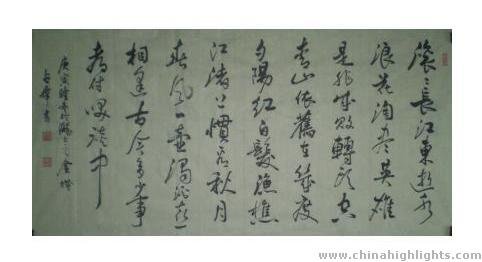 滾〻長江東逝水
浪花淘盡英雄
是非成敗轉頭空
青山依舊在幾度
夕陽紅白髮漁樵
江渚上慣看秋月
春風一壺濁酒喜
相逢古今多少事
都付笑談中
庚寅
書
www.chinahighlights.com